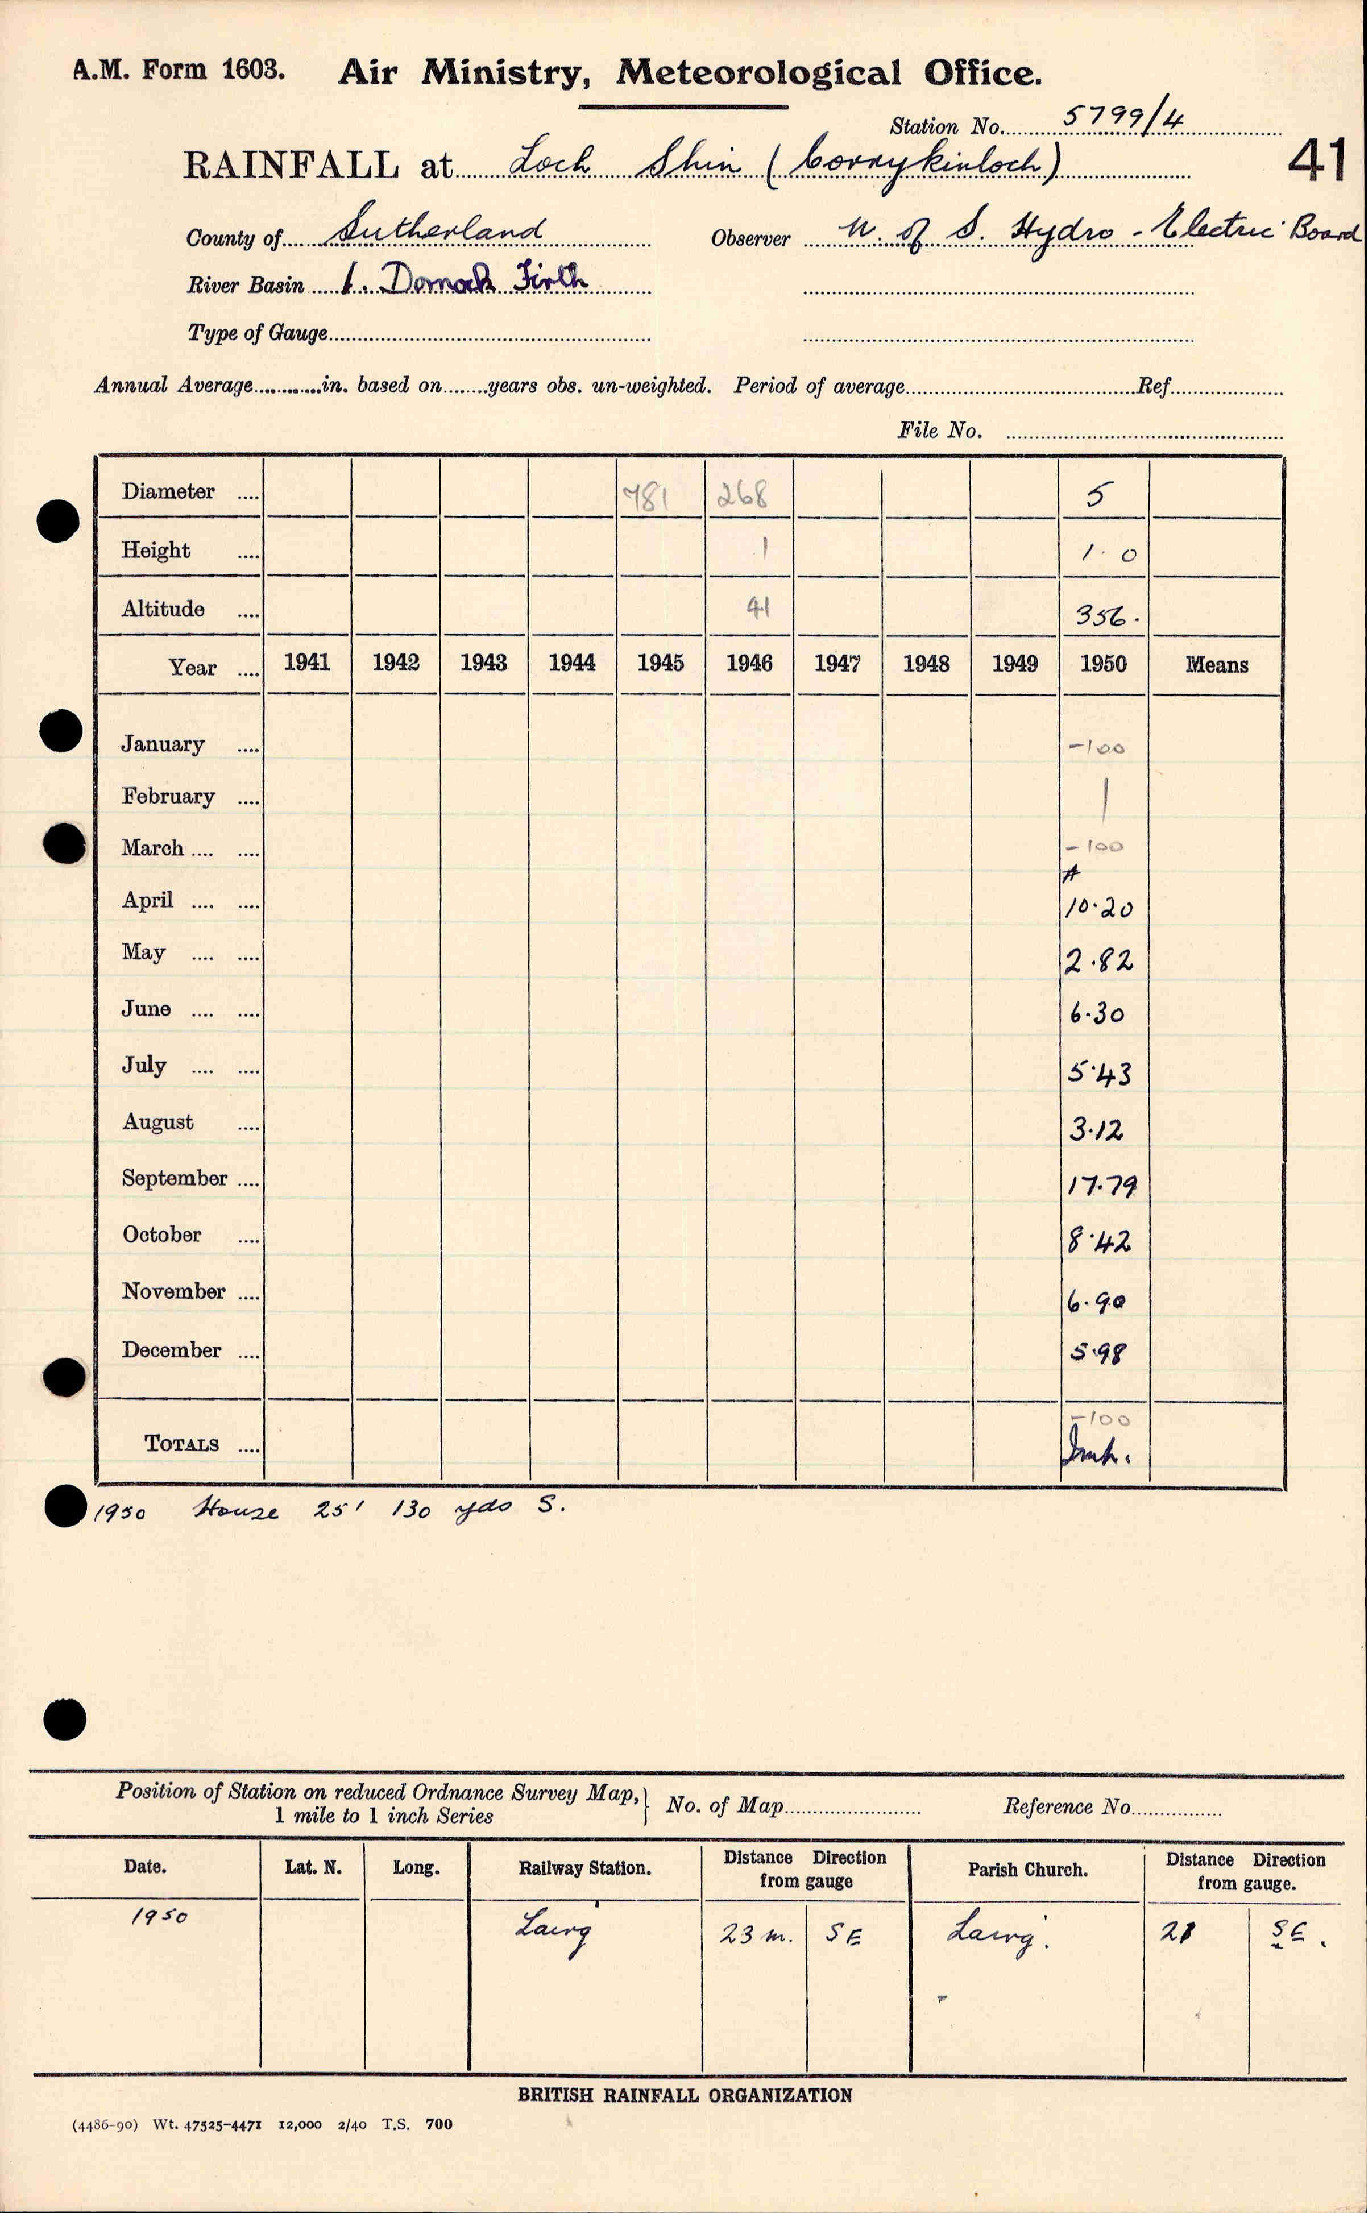 A.M. Form 1603. Air Ministry, Meteorological Office.
Station No. 5799/4
RAINFALL at Loch Shin (Corrykinloch) 41
County of Sutherland Observer N. of S. Hydro-Electric Board
River Basin 1. Dornoch Firth
Type of Gauge
Annual Average in. based on years obs. un-weighted. Period of average Ref.
File No.
Diameter 781 268 5
Height 1 1.0
Altitude 41 356.
Year 1941 1942 1943 1944 1945 1946 1947 1948 1949 1950 Means
January -100
February |
March -100
April 10.20
May 2.82
June 6.30
July 5.43
August 3.12
September 17.79
October 8.42
November 6.90
December 5.98
-100
TOTALS
1950 House 25' 130 yds S.
Position of Station on reduced Ordnance Survey Map, 1 mile to 1 inch Series } No. of Map Reference No.
Date. Lat. N. Long. Railway Station. Distance Direction from gauge Parish Church. Distance Direction from gauge.
1950 Lairg 23 m. SE Lairg. 21 SE.
BRITISH RAINFALL ORGANIZATION
(4486-90) Wt. 47525-4471 12,000 2/40 T.S. 700